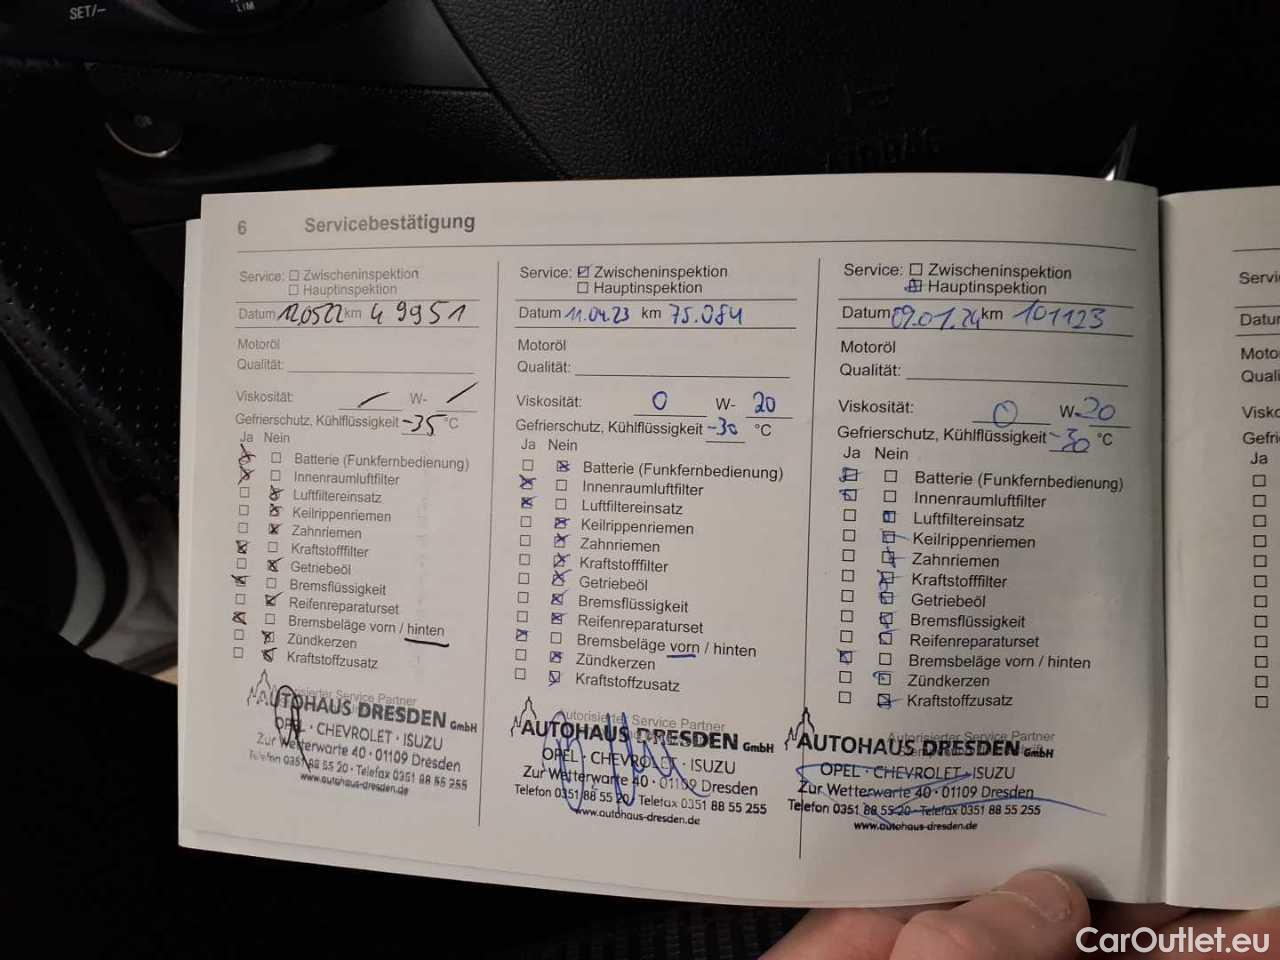 SET/-
LIM
AIRBAG
6 Servicebestätigung
Service: Zwischeninspektion
Hauptinspektion
Datum 12.05.22 km 49951
Motoröl
Qualität:
Viskosität: / W- /
Gefrierschutz, Kühlflüssigkeit -35 °C
Ja Nein
Batterie (Funkfernbedienung)
Innenraumluftfilter
Luftfiltereinsatz
Keilrippenriemen
Zahnriemen
Kraftstofffilter
Getriebeöl
Bremsflüssigkeit
Reifenreparaturset
Bremsbeläge vorn / hinten
Zündkerzen
Kraftstoffzusatz
Autorisierter Service Partner
AUTOHAUS DRESDEN GmbH
OPEL · CHEVROLET · ISUZU
Zur Wetterwarte 40 · 01109 Dresden
Telefon 0351 88 55 20 · Telefax 0351 88 55 255
www.autohaus-dresden.de
Service: Zwischeninspektion
Hauptinspektion
Datum 11.04.23 km 75.084
Motoröl
Qualität:
Viskosität: 0 W- 20
Gefrierschutz, Kühlflüssigkeit -30 °C
Ja Nein
Batterie (Funkfernbedienung)
Innenraumluftfilter
Luftfiltereinsatz
Keilrippenriemen
Zahnriemen
Kraftstofffilter
Getriebeöl
Bremsflüssigkeit
Reifenreparaturset
Bremsbeläge vorn / hinten
Zündkerzen
Kraftstoffzusatz
Autorisierter Service Partner
AUTOHAUS DRESDEN GmbH
OPEL · CHEVROLET · ISUZU
Zur Wetterwarte 40 · 01109 Dresden
Telefon 0351 88 55 20 · Telefax 0351 88 55 255
www.autohaus-dresden.de
Service: Zwischeninspektion
Hauptinspektion
Datum 09.01.24 km 101123
Motoröl
Qualität:
Viskosität: 0 W- 20
Gefrierschutz, Kühlflüssigkeit -30 °C
Ja Nein
Batterie (Funkfernbedienung)
Innenraumluftfilter
Luftfiltereinsatz
Keilrippenriemen
Zahnriemen
Kraftstofffilter
Getriebeöl
Bremsflüssigkeit
Reifenreparaturset
Bremsbeläge vorn / hinten
Zündkerzen
Kraftstoffzusatz
Autorisierter Service Partner
AUTOHAUS DRESDEN GmbH
OPEL · CHEVROLET · ISUZU
Zur Wetterwarte 40 · 01109 Dresden
Telefon 0351 88 55 20 · Telefax 0351 88 55 255
www.autohaus-dresden.de
Ja
CarOutlet.eu